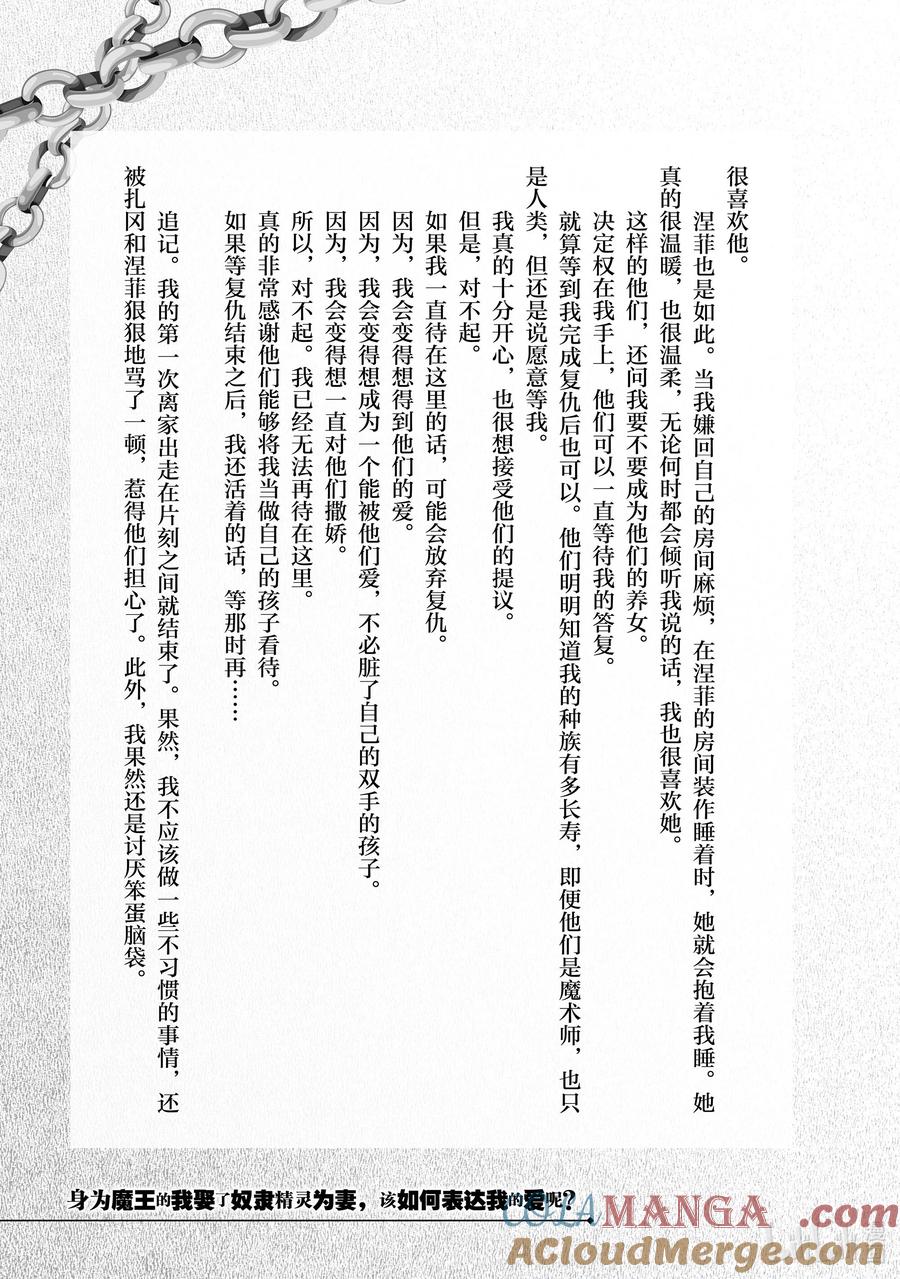 很喜欢他。
涅菲也是如此。当我嫌回自己的房间麻烦，在涅菲的房间装作睡着时，她就会抱着我睡。她
真的很温暖，也很温柔，无论何时都会倾听我说的话，我也很喜欢她。
这样的他们，还问我要不要成为他们的养女。
决定权在我手上，他们可以一直等待我的答复。
就算等到我完成复仇后也可以。他们明明知道我的种族有多长寿，即便他们是魔术师，也只
是人类，但还是说愿意等我。
我真的十分开心，也很想接受他们的提议。
但是，对不起。
如果我一直待在这里的话，可能会放弃复仇。
因为，我会变得想得到他们的爱。
因为，我会变得想成为一个能被他们爱，不必脏了自己的双手的孩子。
因为，我会变得想一直对他们撒娇。
所以，对不起。我已经无法再待在这里。
真的非常感谢他们能够将我当做自己的孩子看待。
如果等复仇结束之后，我还活着的话，等那时再……
追记。我的第一次离家出走在片刻之间就结束了。果然，我不应该做一些不习惯的事情，还
被扎冈和涅菲狠狠地骂了一顿，惹得他们担心了。此外，我果然还是讨厌笨蛋脑袋。
身为魔王的我娶了奴隶精灵为妻，该如何表达我的爱呢？
COLAMANGA.com
ACloudMerge.com